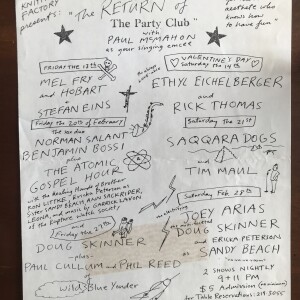 KNITTING
FACTORY
presents:
"The RETURN of
The Party Club"
with
PAUL McMAHON
as your singing emcee
aesthete who
knows how
to have fun"
FRIDAY THE 13th
MEL FRY
and HOBART
STEFAN EINS
VALENTINE'S DAY
Saturday the 14th
ETHYL EICHELBERGER
and
RICK THOMAS
Friday the 20th of February
NORMAN SALANT
BENJAMIN BOSSI
plus
THE ATOMIC
GOSPEL HOUR
with the
KON LITTKE, Ericka Peterson as
Sister SANDY BEACH, ANN MACKRIDER,
LEONA, and music by GARRICK LAVON
of the Rapture Watch Society
Saturday the 21st
SAQQARA DOGS
and
TIM MAUL
Friday the 27th
DOUG SKINNER
-plus-
PAUL CULLUM and PHIL REED
Saturday Feb 28th
JOEY ARIAS
DOUG SKINNER
and
ERICKA PETERSON
as SANDY BEACH
2 SHOWS NIGHTLY
9 + 11 PM
$5 Admission
for Table Reservations: 219.3055
Wild Blue Yonder